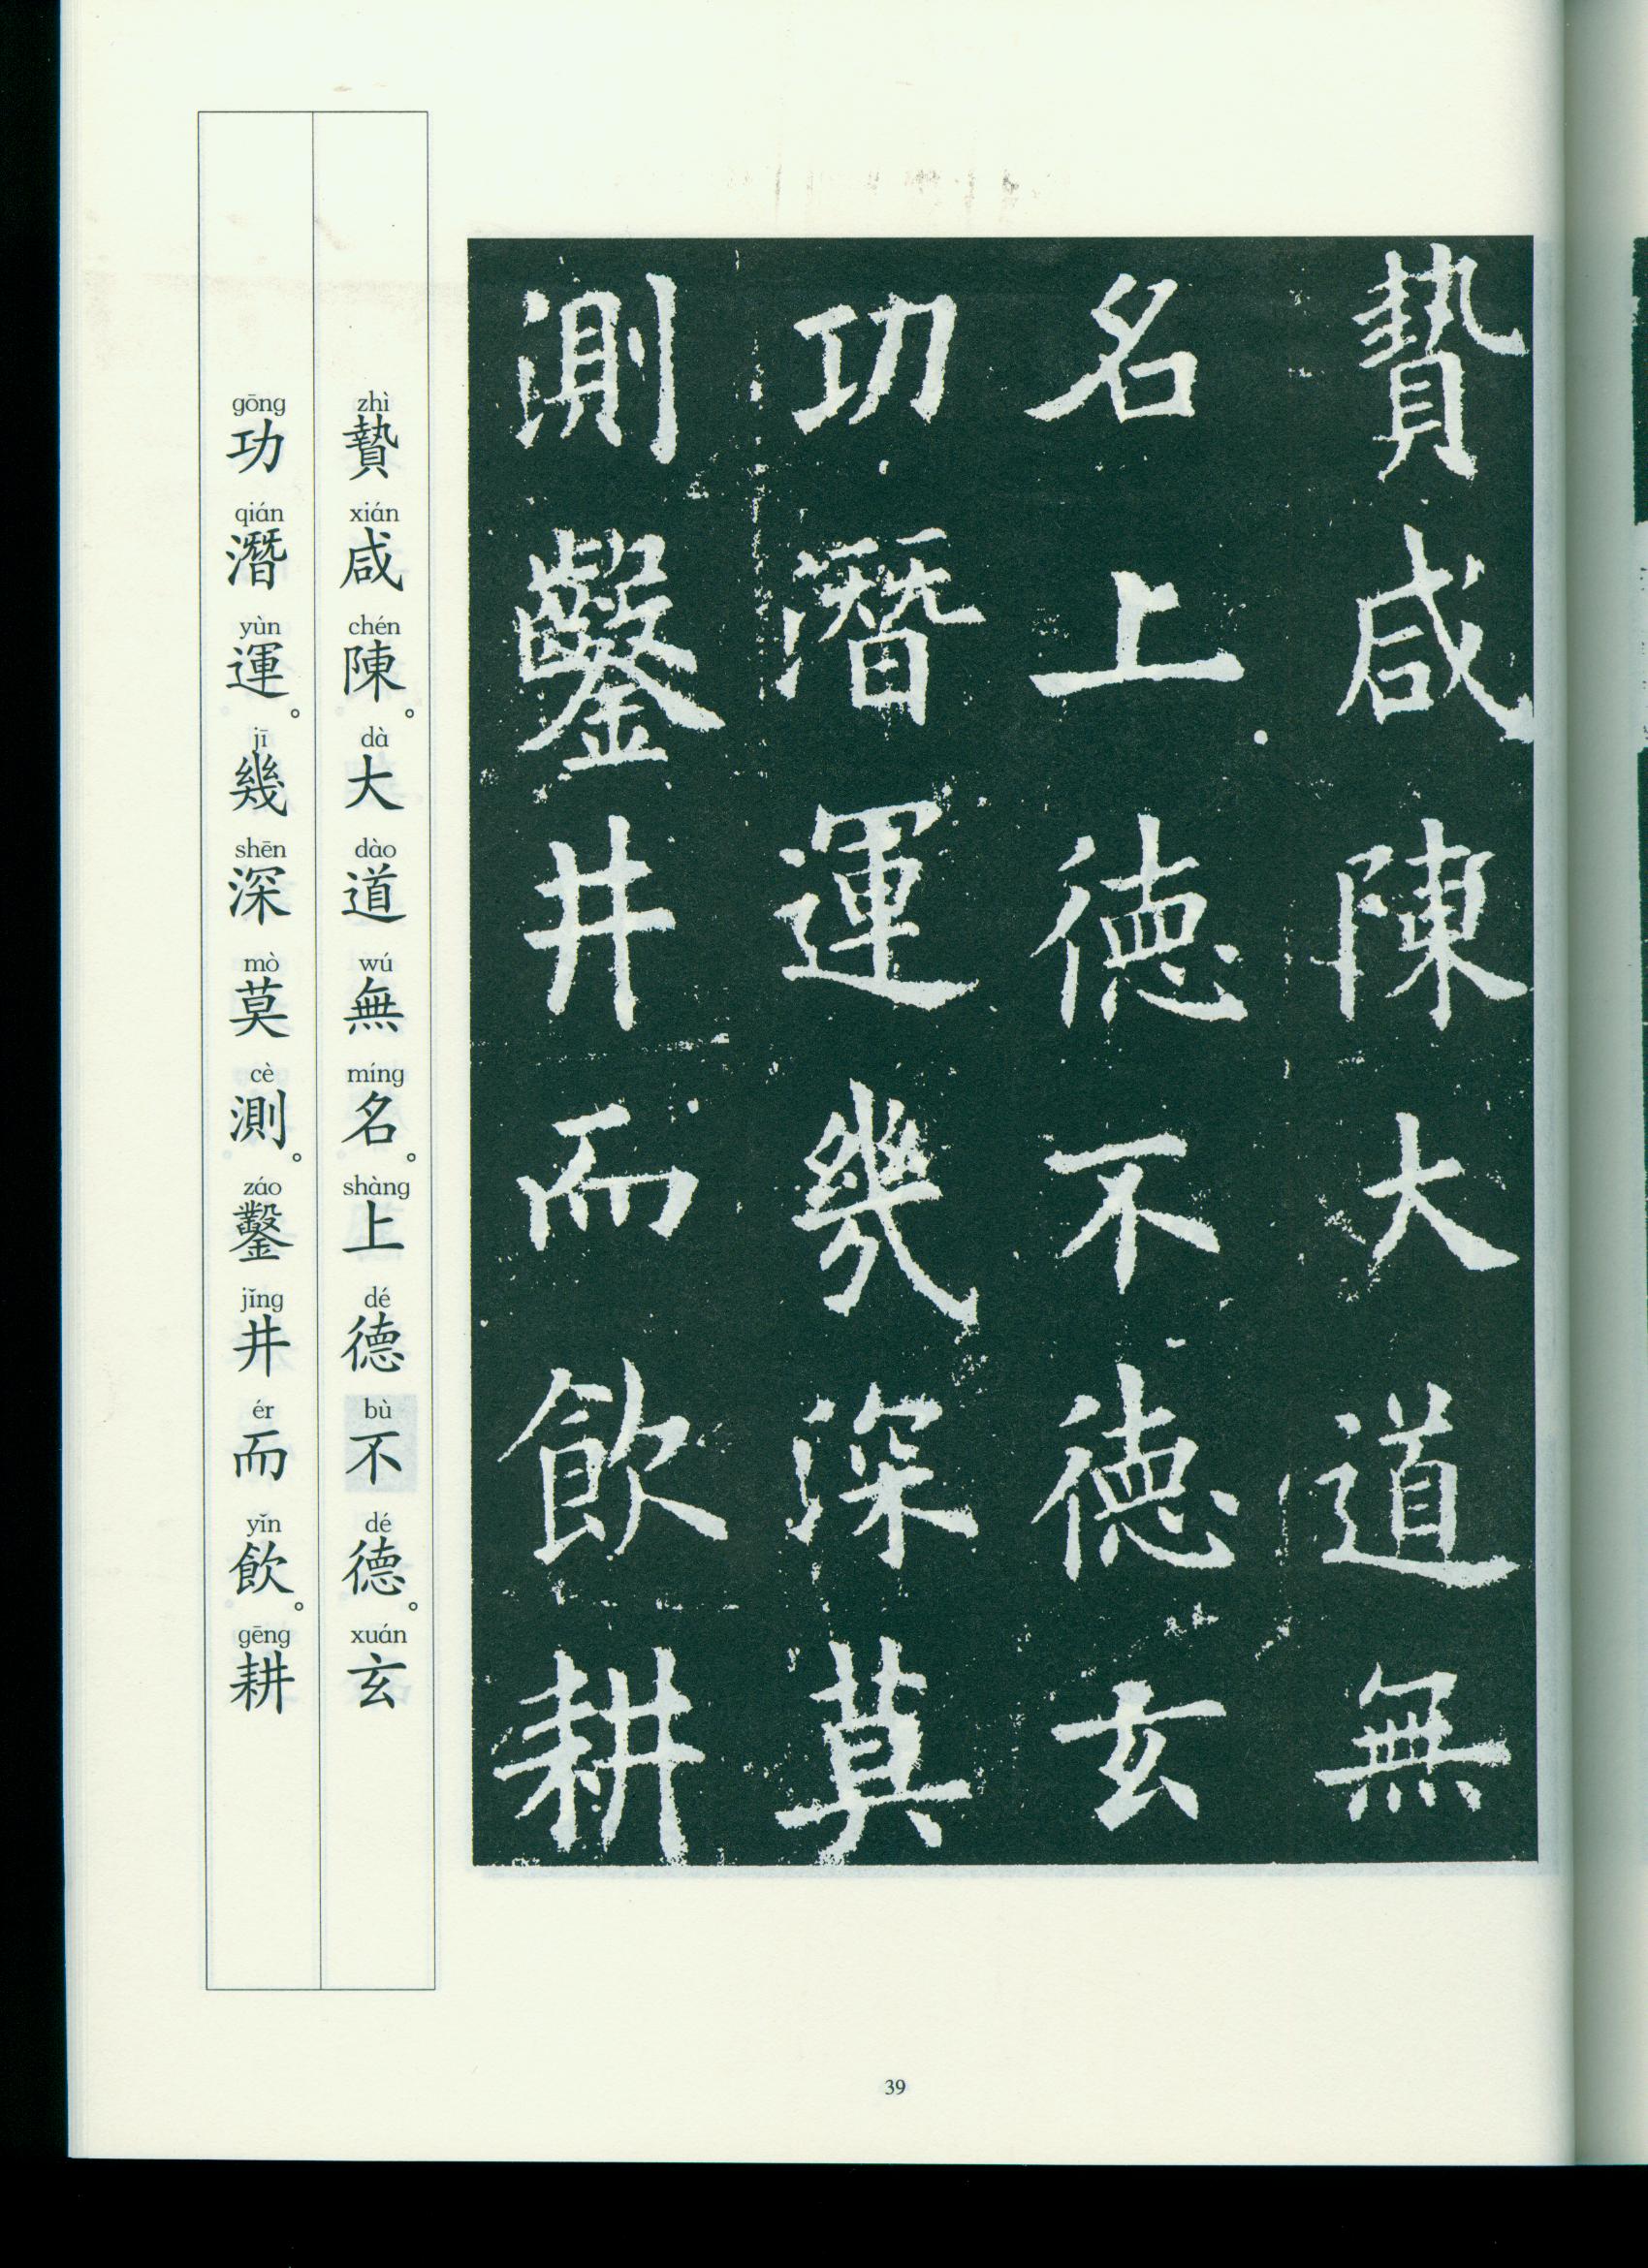 贄咸陳大道無
名上德不德玄
功潛運幾深莫
測鑿井而飲耕
zhì xián chén dà dào wú míng shàng dé bù dé xuán
贄咸陳。大道無名。上德不德。玄
gōng qián yùn jī shēn mò cè záo jǐng ér yǐn gēng
功潛運。幾深莫測。鑿井而飲。耕
39